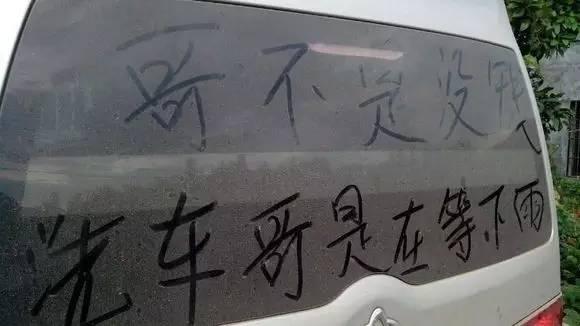 哥不是没
洗车哥是在等下雨